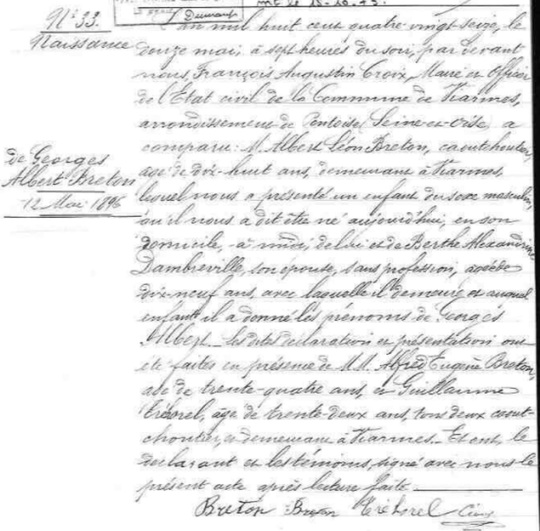 N° 33.
Naissance
de Georges
Albert Breton
12 Mai 1896
An mil huit cent quatre-vingt seize, le
douze mai à sept heures du soir, par devant
nous, François Augustin Croix, Maire et Officier
de l'Etat civil de la Commune de Viarmes,
arrondissement de Pontoise (Seine-et-Oise) a
comparu: M. Albert Léon Breton, caoutchoutier,
âgé de dix-huit ans, demeurant à Viarmes,
lequel nous a présenté un enfant du sexe masculin,
qu'il nous a dit être né aujourd'hui, en son
domicile, à midi, de lui et de Berthe Alexandrine
Dambreville, son épouse, sans profession, âgée de
dix-neuf ans, avec laquelle il demeure et auquel
enfant il a donné les prénoms de Georges
Albert. Les dites déclaration et présentation ont
été faites en présence de MM. Alfred Eugène Breton,
âgé de trente-quatre ans, et Guillaume
Tréhorel, âgé de trente-deux ans, tous deux caout-
choutier, et demeurant à Viarmes. Et ont, le
déclarant et les témoins, signé avec nous le
présent acte après lecture faite.
Breton Breton Tréhorel